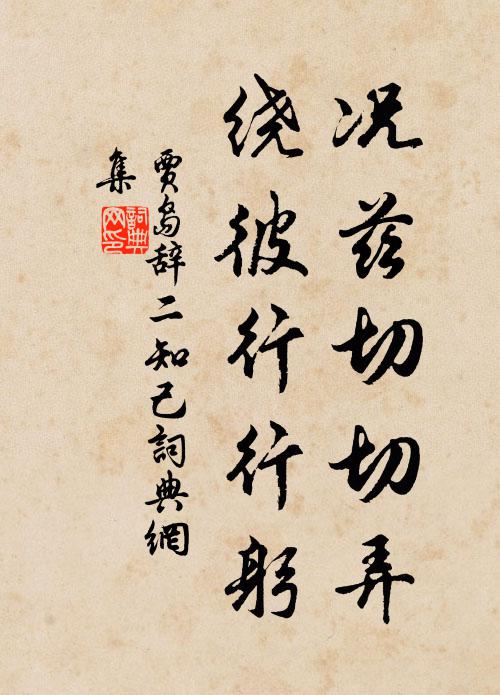 况兹切切弄
绕彼行行躬
贾岛辞二知己詞典網
集
詞典
网印